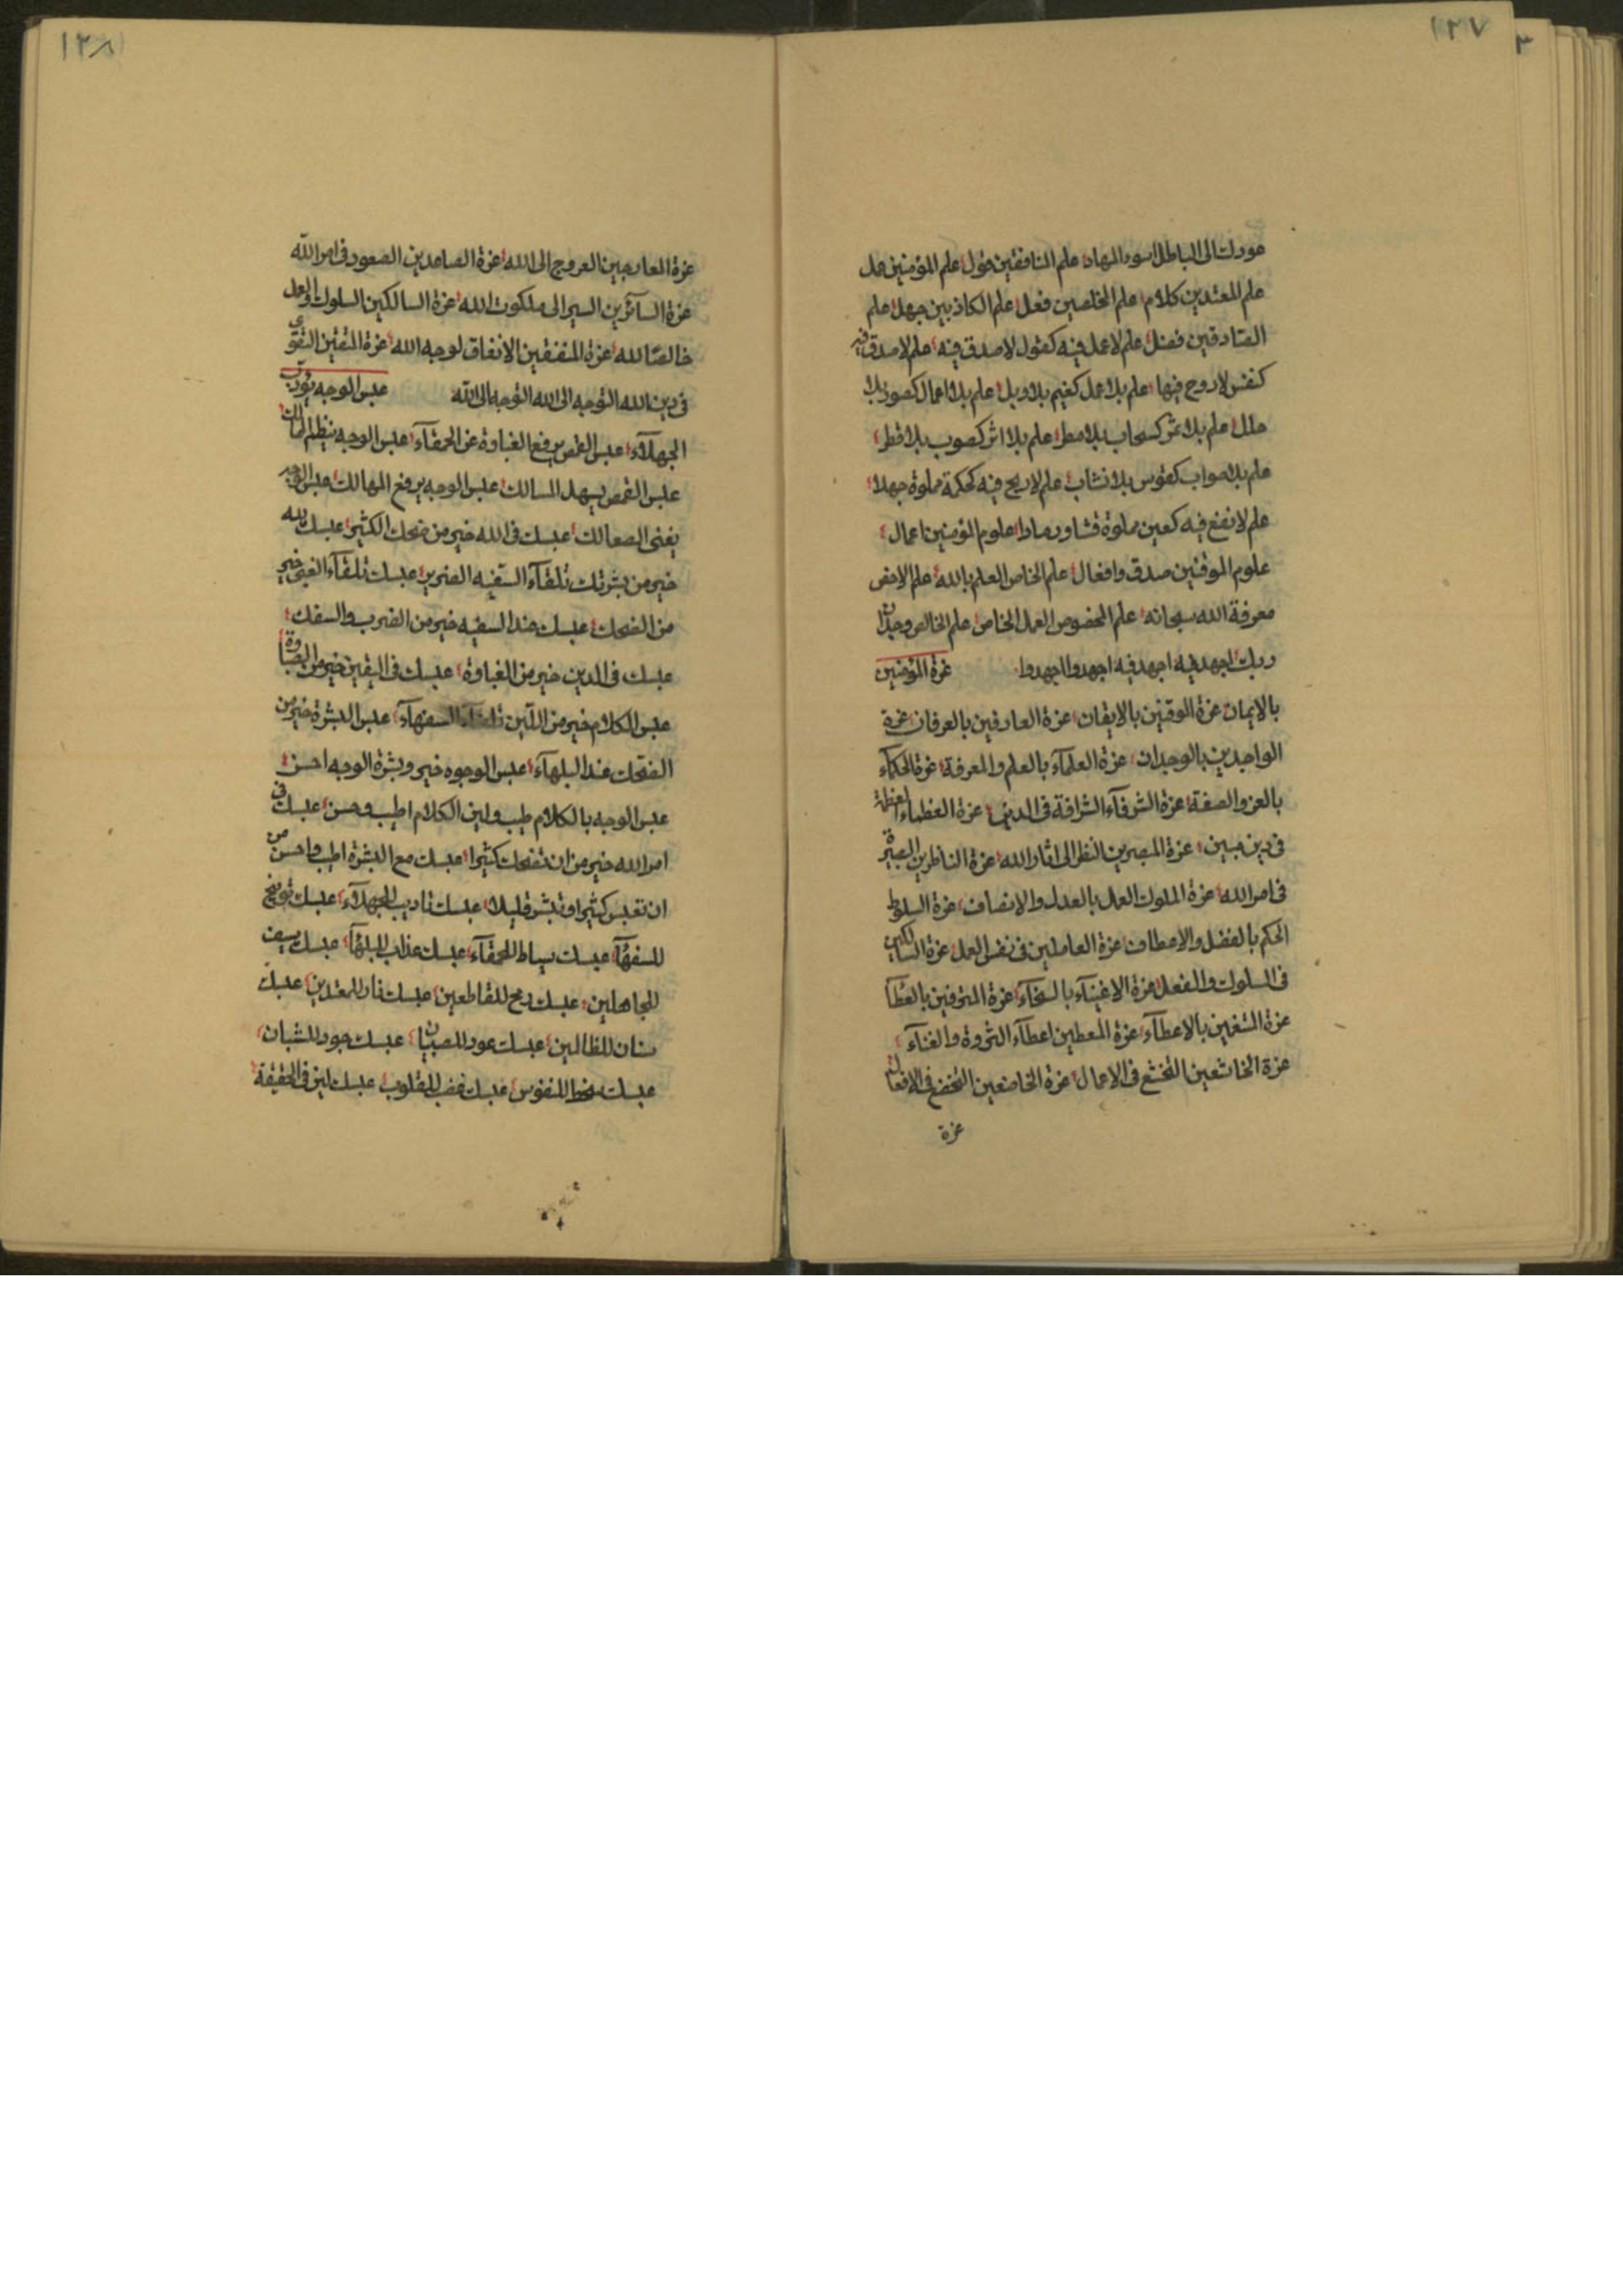 ١٢٧
عودك الى الباطل اسود المهاد علم المنافقين قول علم المؤمنين عمل
علم المعتدين كلام علم المخلصين فعل علم الكاذبين جهل علم
الصادقين فضل علم لا عمل فيه كقول لا صدق فيه علم لا صدق فيه
كنفس لا روح فيها علم بلا عمل كغيم بلا وبل علم بلا اعمال كعود بلا
علم بلا ثمر كسحاب بلا مطر علم بلا اثر كصوب بلا قطر
علم بلا صواب كقوس بلا نشاب علم لا ربح فيه كحكمة مملوة جهلا
علم لا نفع فيه كعين مملوة قشا ورمادا علوم المؤمنين اعمال
علوم الموقنين صدق وافعال علم الخاص العلم بالله علم الاخص
معرفة الله سبحانه علم المخصوص العمل الخاص علم الخالص وجدان
ربك اجهد فيه اجهد فيه اجهدوا اجهدوا عزة المؤمنين
بالايمان عزة الموقنين بالايقان عزة العارفين بالعرفان عزة
الواجدين بالوجدان عزة العلمآء بالعلم والمعرفة عزة الحكمآء
بالعز والصفة عزة الشرفآء الشرافة فى الدين عزة العظماء العظمة
فى دين مبين عزة المبصرين النظر الى اثار الله عزة الناظرين البصيرة
فى امر الله عزة الملوك العمل بالعدل والانصاف عزة السلوط
الحكم بالفضل والاعطاف عزة العاملين فى نفس العمل عزة السالكين
فى السلوك والفعل عزة الاغنيآء بالسخآء عزة المترفين بالعطآ
عزة المتغنين بالاعطآء عزة المعطين اعطآء الثروة والغنآء
عزة الخاشعين التخشع فى الاعمال عزة الخاضعين التخضع فى الافعال
عزة
١٢٨
عزة العارجين العروج الى الله عزة الصاعدين الصعود فى امر الله
عزة السآئرين السير الى ملكوت الله عزة السالكين السلوك والعمل
خالصا لله عزة المنفقين الانفاق لوجه الله عزة المتقين التقوى
فى دين الله التوجه الى الله التوجه الى الله عبس الوجه يؤدب
الجهلآء عبس الغمص يرفع الغباوة عن الحمقآء عبس الوجه ينظم الممالك
عبس الغمص يسهل المسالك عبس الوجه يرفع المهالك عبس الوجه
يغنى الصعالك عبسك فى الله خير من ضحك الكثير عبسك لله
خير من بشرتك تلقآء السفيه الضرير عبسك تلقآء الغبى خير
من الضحك عبسك عند السفيه خير من الضرب والسفك
عبسك فى الدين خير من الغباوة عبسك فى اليقين خير من الصباوة
عبس الكلام خير من اللين تلقآء السفهآء عبس البشرة خير من
الضحك عند البلهآء عبس الوجوه خير وبشرة الوجه احسن
عبس الوجه بالكلام طيب ولين الكلام اطيب وحسن عبسك فى
امر الله خير من ان تضحك كثيرا عبسك مع البشرة اطيب واحسن من
ان تعبس كثيرا وتبشر قليلا عبسك تاديب للجهلآء عبسك توبيخ
للسفهآ عبسك سياط للحمقآء عبسك عذاب للبلهآ عبسك سيف
للجاهلين عبسك رمح للقاطعين عبسك نار للمعتدين عبسك
سنان للظالمين عبسك عود للصبيان عبسك جود للشبان
عبسك سخط للنفوس عبسك غضب للقلوب عبسك لين فى الحقيقة